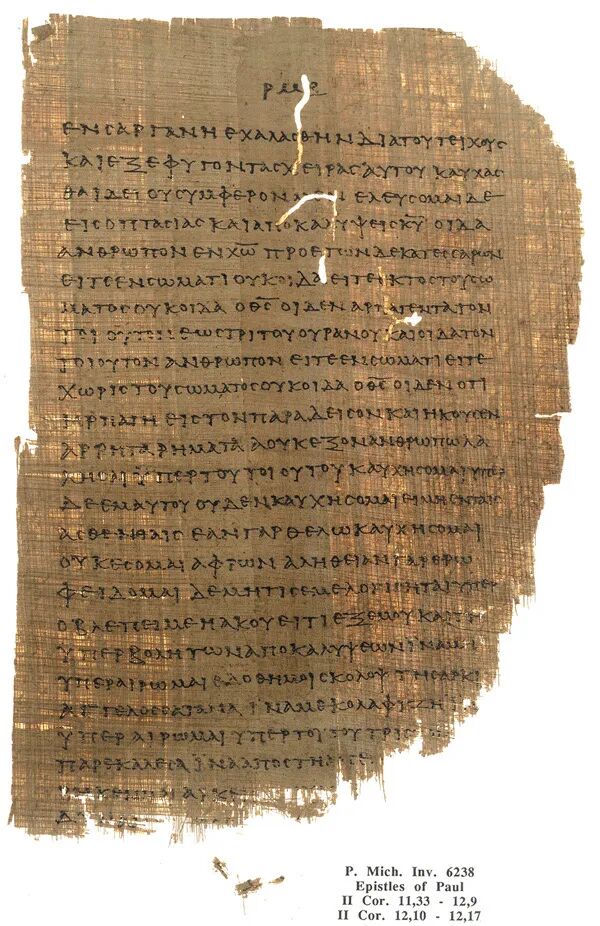 ΕΝΣΑΡΓΑΝΗΕΧΑΛΑΣΘΗΝΔΙΑΤΟΥΤΕΙΧΟΥΣ
ΚΑΙΕΞΕΦΥΓΟΝΤΑΣΧΕΙΡΑΣΑΥΤΟΥΚΑΥΧΑΣ
ΘΑΙΔΕΙΟΥΣΥΜΦΕΡΟΝ ΕΛΕΥΣΟΜΑΙΔΕ
ΕΙΣΟΠΤΑΣΙΑΣΚΑΙΑΠΟΚΑΛΥΨΕΙΣΚ̅Υ̅ΟΙΔΑ
ΑΝΘΡΩΠΟΝΕΝΧ̅Ω̅ΠΡΟΕΤΩΝΔΕΚΑΤΕΣΣΑΡΩΝ
ΕΙΤΕΕΝΣΩΜΑΤΙΟΥΚΟΙΔΑΕΙΤΕΕΚΤΟΣΤΟΥΣΩ
ΜΑΤΟΣΟΥΚΟΙΔΑΟΘ̅Σ̅ΟΙΔΕΝΑΡΠΑΓΕΝΤΑΤΟΝ
ΕΩΣΤΡΙΤΟΥΟΥΡΑΝΟΥΚΑΙΟΙΔΑΤΟΝ
ΤΟΙΟΥΤΟΝΑΝΘΡΩΠΟΝΕΙΤΕΕΝΣΩΜΑΤΙΕΙΤΕ
ΧΩΡΙΣΤΟΥΣΩΜΑΤΟΣΟΥΚΟΙΔΑΟΘ̅Σ̅ΟΙΔΕΝΟΤΙ
ΗΡΠΑΓΗΕΙΣΤΟΝΠΑΡΑΔΕΙΣΟΝΚΑΙΗΚΟΥΣΕΝ
ΑΡΡΗΤΑΡΗΜΑΤΑΑΟΥΚΕΞΟΝΑΝΘΡΩΠΩΛΑ
ΛΗΣΑΙΥΠΕΡΤΟΥΤΟΙΟΥΤΟΥΚΑΥΧΗΣΟΜΑΙΥΠΕΡ
ΔΕΕΜΑΥΤΟΥΟΥΔΕΝΚΑΥΧΗΣΟΜΑΙΕΙΜΗΕΝΤΑΙΣ
ΑΣΘΕΝΕΙΑΙΣΕΑΝΓΑΡΘΕΛΩΚΑΥΧΗΣΟΜΑΙ
ΟΥΚΕΣΟΜΑΙΑΦΡΩΝΑΛΗΘΕΙΑΝΓΑΡΕΡΩ
ΦΕΙΔΟΜΑΙΔΕΜΗΤΙΣΕΜΕΛΟΓΙΣΗΤΑΙΥΠΕΡ
ΟΒΛΕΠΕΙΜΕΗΑΚΟΥΕΙΤΙΕΞΕΜΟΥΚΑΙΤΗ
ΥΠΕΡΒΟΛΗΤΩΝΑΠΟΚΑΛΥΨΕΩΝΙΝΑΜΗ
ΥΠΕΡΑΙΡΩΜΑΙΕΔΟΘΗΜΟΙΣΚΟΛΟΨΤΗΣΑΡΚΙ
ΑΓΓΕΛΟΣΣΑΤΑΝΑΙΝΑΜΕΚΟΛΑΦΙΖΗ
ΥΠΕΡΑΙΡΩΜΑΙΥΠΕΡΤΟΥΤΟΥΤΡΙΣ
ΠΑΡΕΚΑΛΕΣΑΙΝΑΑΠΟΣΤΗ
P. Mich. Inv. 6238
Epistles of Paul
II Cor. 11,33 - 12,9
II Cor. 12,10 - 12,17